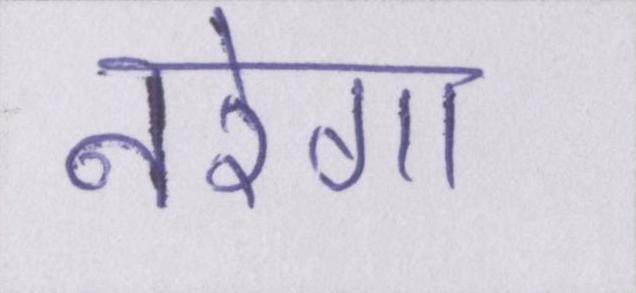 नरेगा